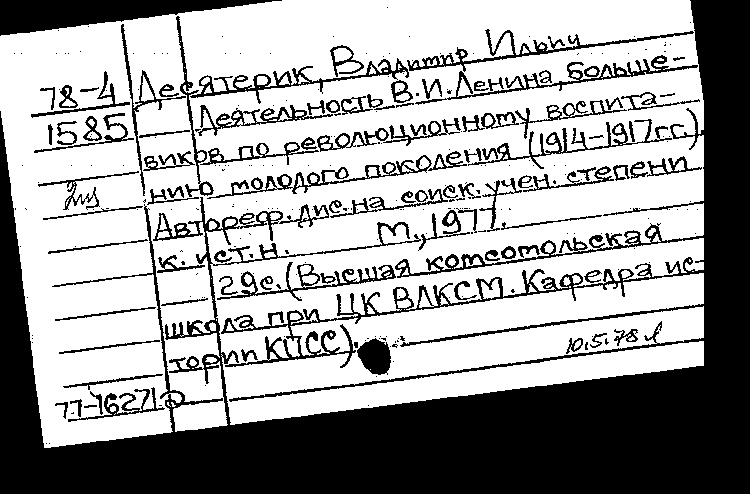 78-4 Десятерик, Владимир Ильич
1585 Деятельность В.И.Ленина, больше-
виков по революционному воспита-
нию молодого поколения (1914-1917гг).
Автореф.дис.на соиск.учен.степени
к.ист.н. М.,1977.
29с.(Высшая комсомольская
школа при ЦК ВЛКСМ.Кафедра ис-
тории КПСС).
10.5.78
77-16271